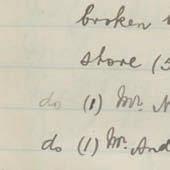 broken
store (5
do (1) Mr. N
do (1) Mr. And